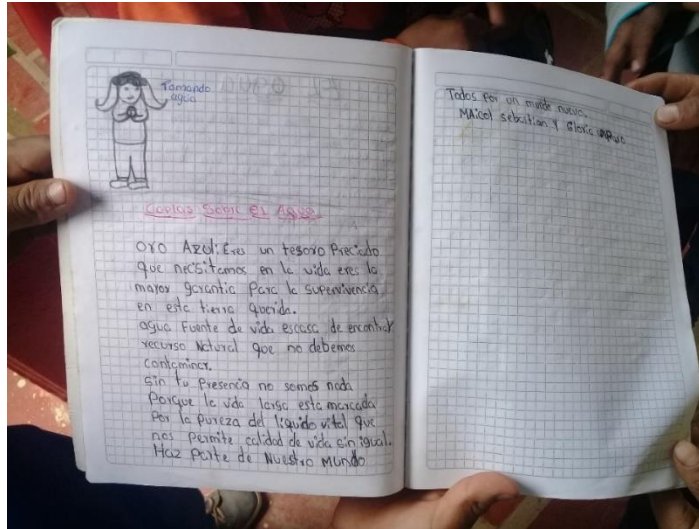 Tomando
agua
Coplas Sobre el Agua
Oro Azul: Eres un tesoro Preciado
que necsitamos en la vida eres la
mayor garantia Para la supervivencia
en esta tierra querida.
agua Fuente de vida escasa de encontrar
recurso Natural que no debemos
contaminar.
Sin tu Presencia no somos nada
Porque la vida larga esta marcada
Por la Pureza del liquido vital que
nos Permite calidad de vida sin igual.
Haz Parte de Nuestro Mundo
Todos Por un mundo nuevo.
MAicol sebastian Y Gloria